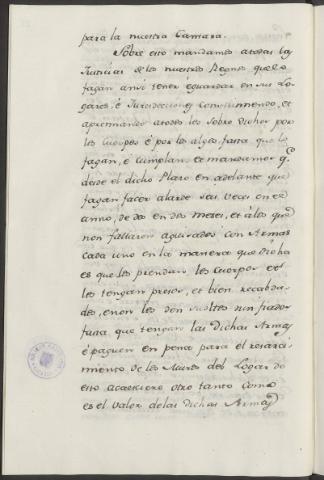 para la nuestra Camara.
Sobre esto mandamos atodas las
Justicias de los nuestros Regnos que lo
fagan ansi tener eguardar en sus Lo-
gares, é Jurisdicciones constriniendo, et
apremiando atodos los sobre dichos por
los Cuerpos é por los algos, fasta que lo
fagan, é cumplan. et mandamos q.
desde el dicho Plazo en adelante que
fagan facer alarde seis veces en el
anno, de dos en dos meses, et álos que
non fallaren aguisados con Armas
cada uno en la manera que dicha
es que les prendan los cuerpos et
les tengan presos, et bien recabda-
dos, enon los den sueltos sin fiador
fata que tengan las dichas Armas
é paguen en pena para el reparci-
miento de los Muros del Logar do
esto acaesciere otro tanto como
es el valor delas dichas Armas